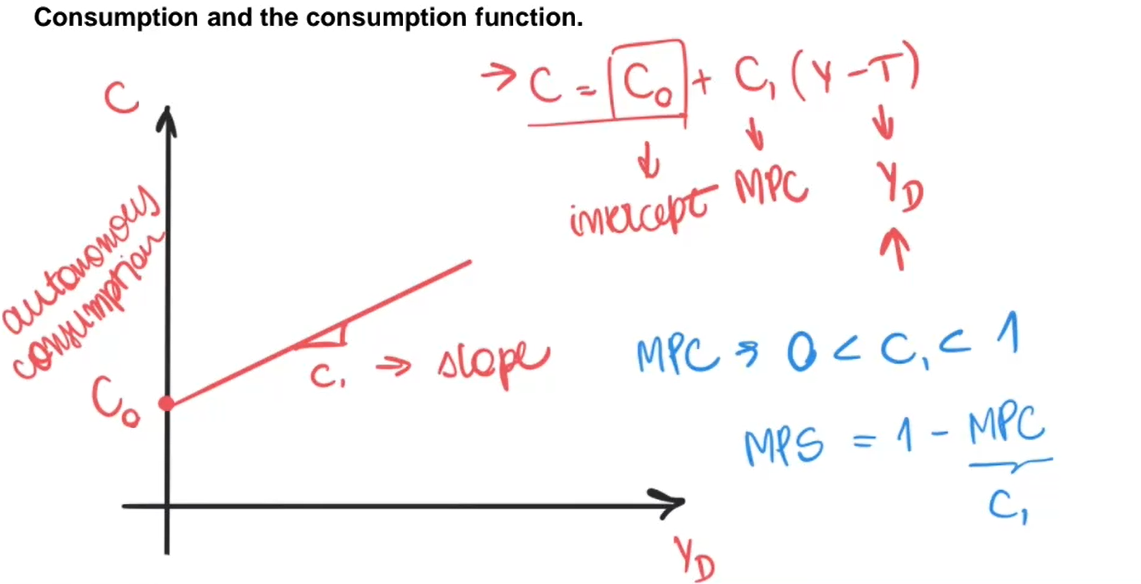 Consumption and the consumption function.
→ C = C₀ + C₁ (Y - T)
↓ ↓ ↓
intercept MPC Y_D
↑
C
autonomous
consumption
C₀
C₁ → slope
Y_D
MPC → 0 < C₁ < 1
MPS = 1 - MPC
C₁